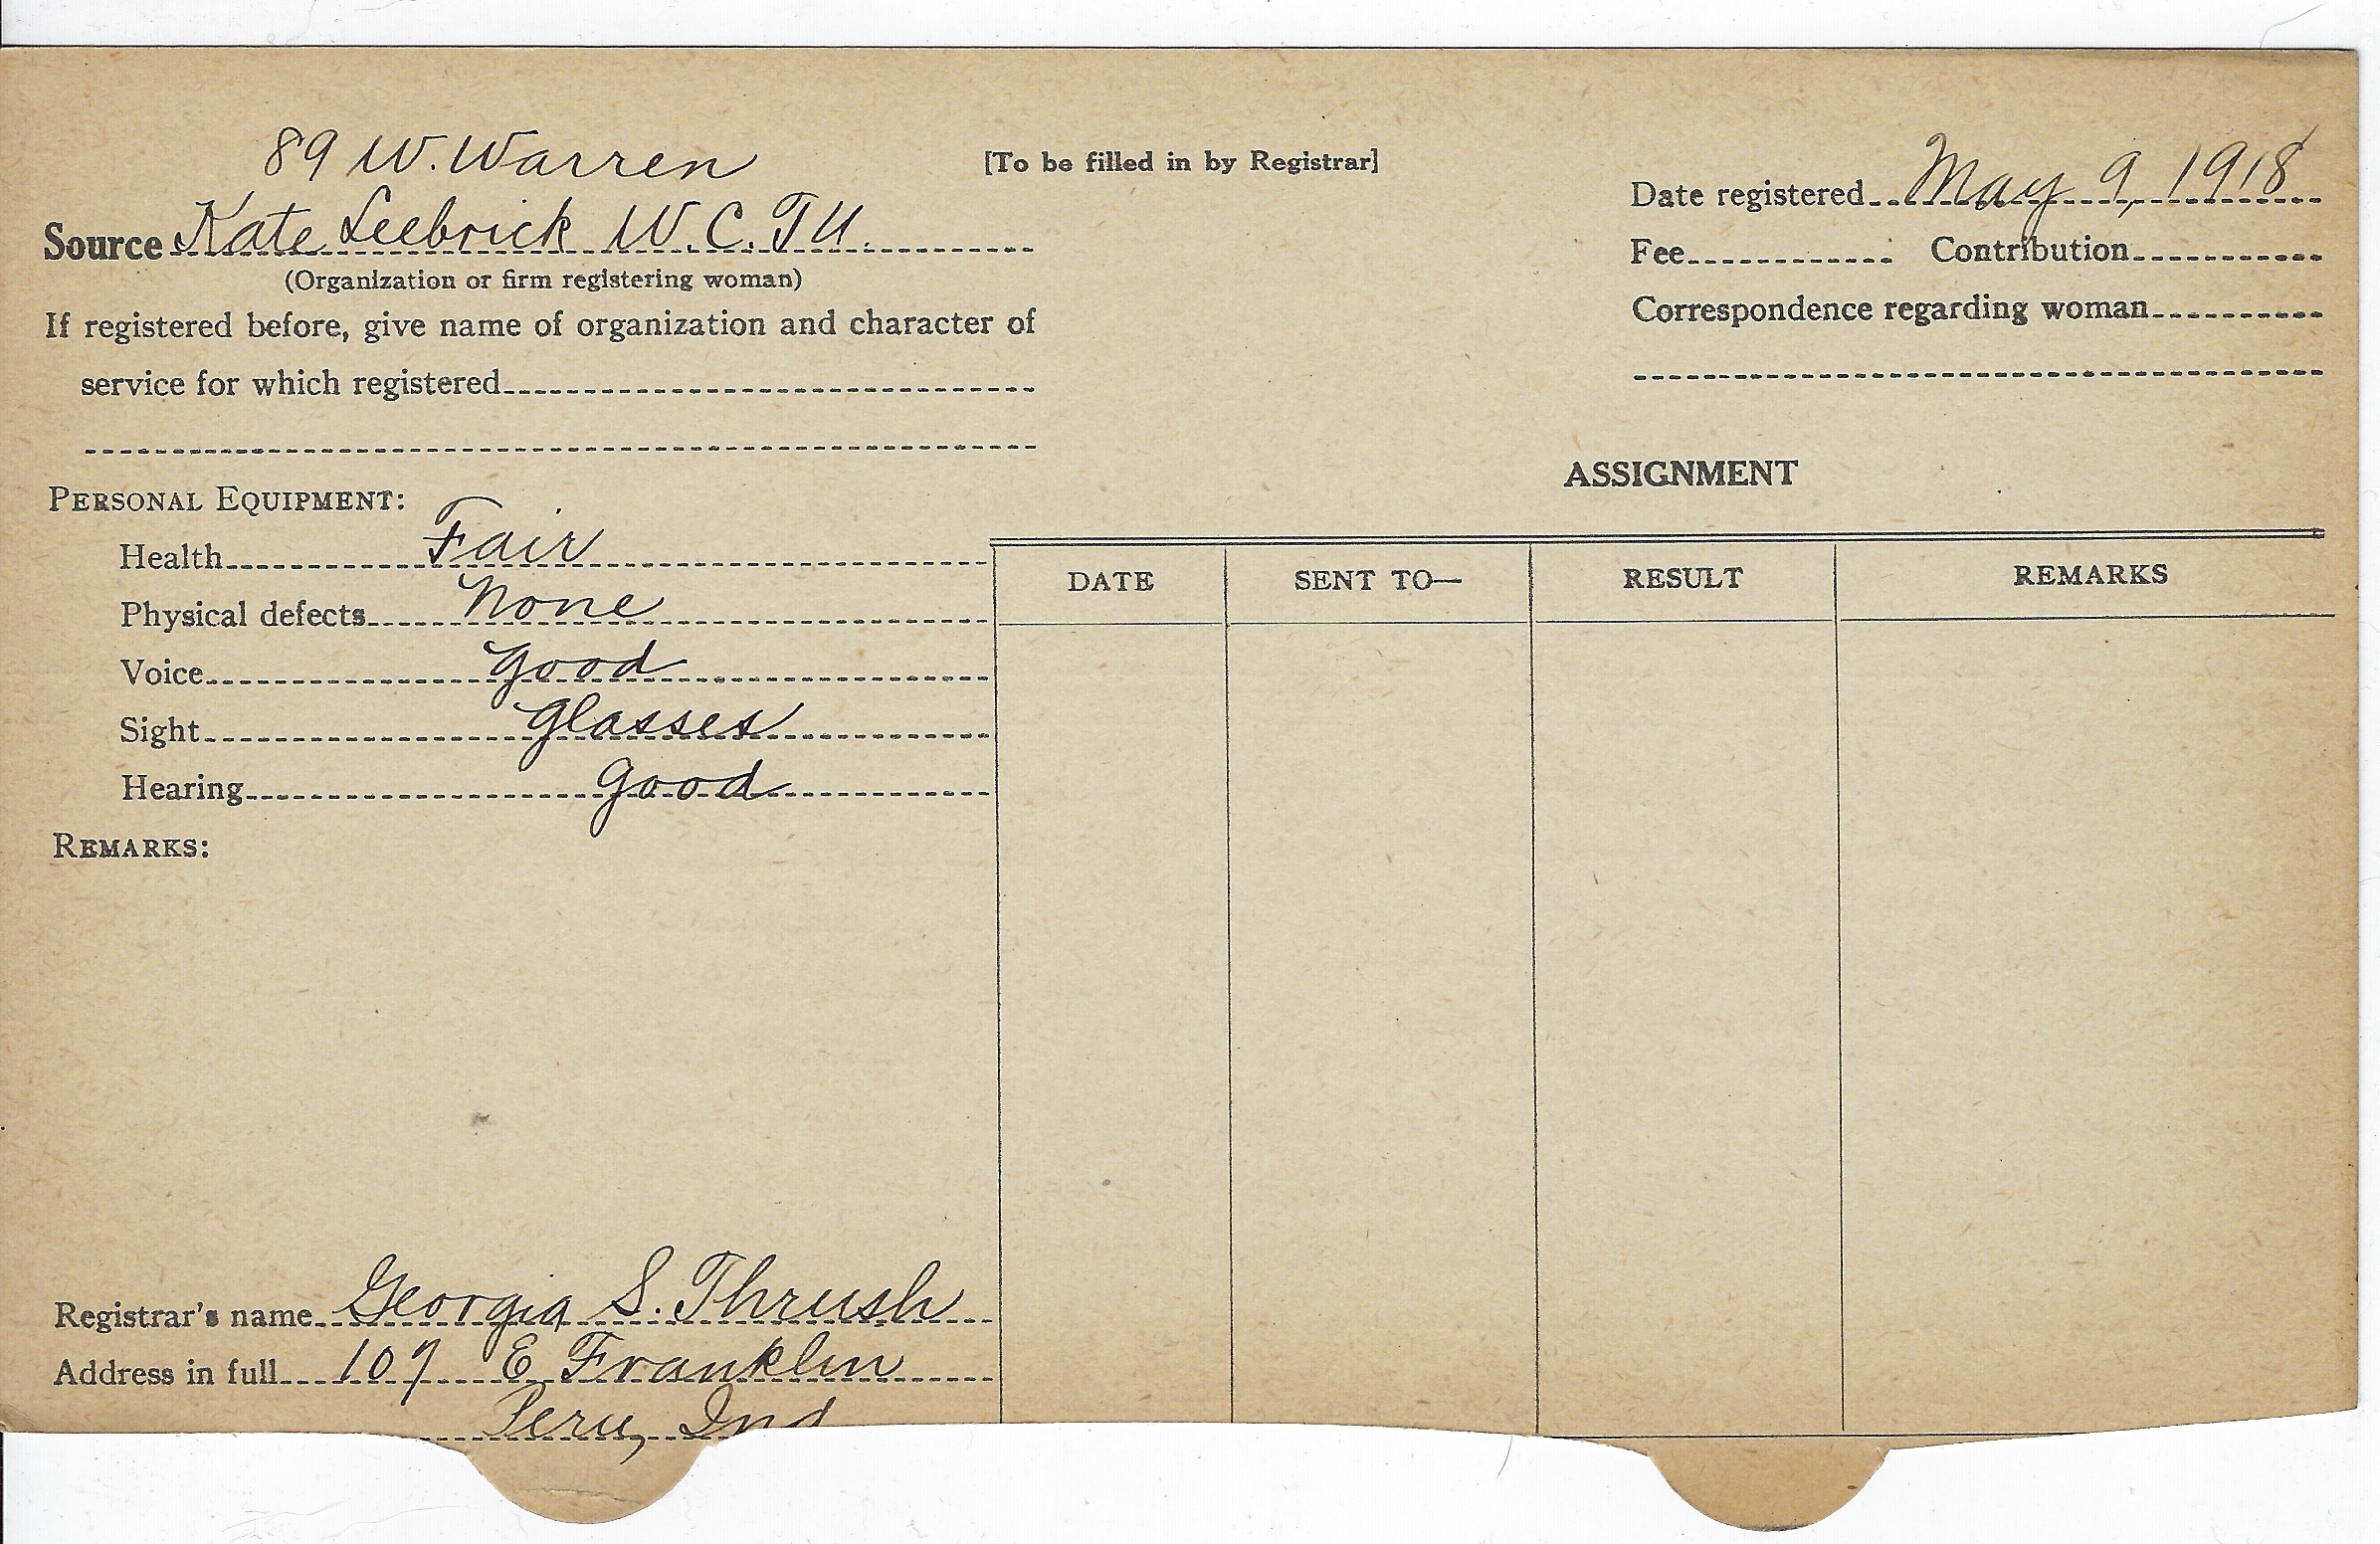 89 W. Warren
[To be filled in by Registrar]
Source Kate Seebrick W. C. T U.
(Organization or firm registering woman)
If registered before, give name of organization and character of
service for which registered
Date registered May 9, 1918
Fee Contribution
Correspondence regarding woman
PERSONAL EQUIPMENT:
Health Fair
Physical defects None
Voice good
Sight glasses
Hearing good
REMARKS:
Registrar's name Georgia S. Thrush
Address in full 107 E Franklin
Peru, Ind
ASSIGNMENT
DATE SENT TO— RESULT REMARKS